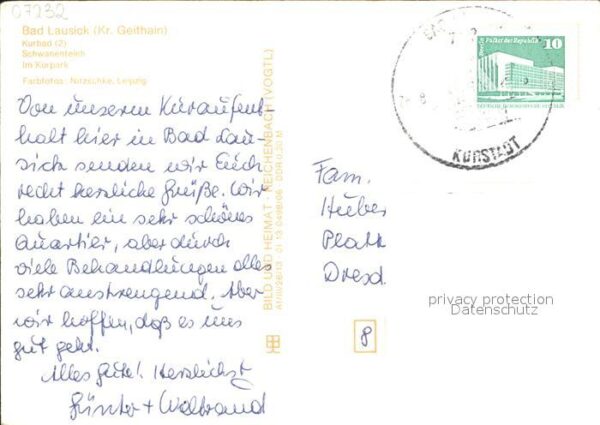 07232
Bad Lausick (Kr. Geithain)
Kurbad (2)
Schwanenteich
im Kurpark
Farbfotos: Nitzschke, Leipzig
Von unserem Kuraufent-
halt hier in Bad Lau-
sick senden wir Euch
recht herzliche Grüße. Wir
haben ein sehr schönes
Quartier, aber durch
viele Behandlungen alles
sehr anstrengend. Aber
wir hoffen, daß es uns
gut geht.
Alles Gute! Herzlichst
Günter + Waltraud
BILD UND HEIMAT REICHENBACH (VOGTL)
Palast der Republik
10
KURSTADT
Fam.
Huber
Dresd.
privacy protection
Datenschutz
8